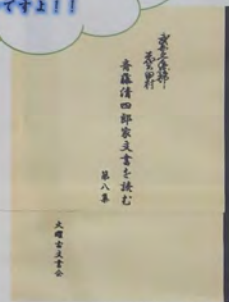 ですよ!!
斉藤清四郎家文書を読む
第八集
火曜古文書会